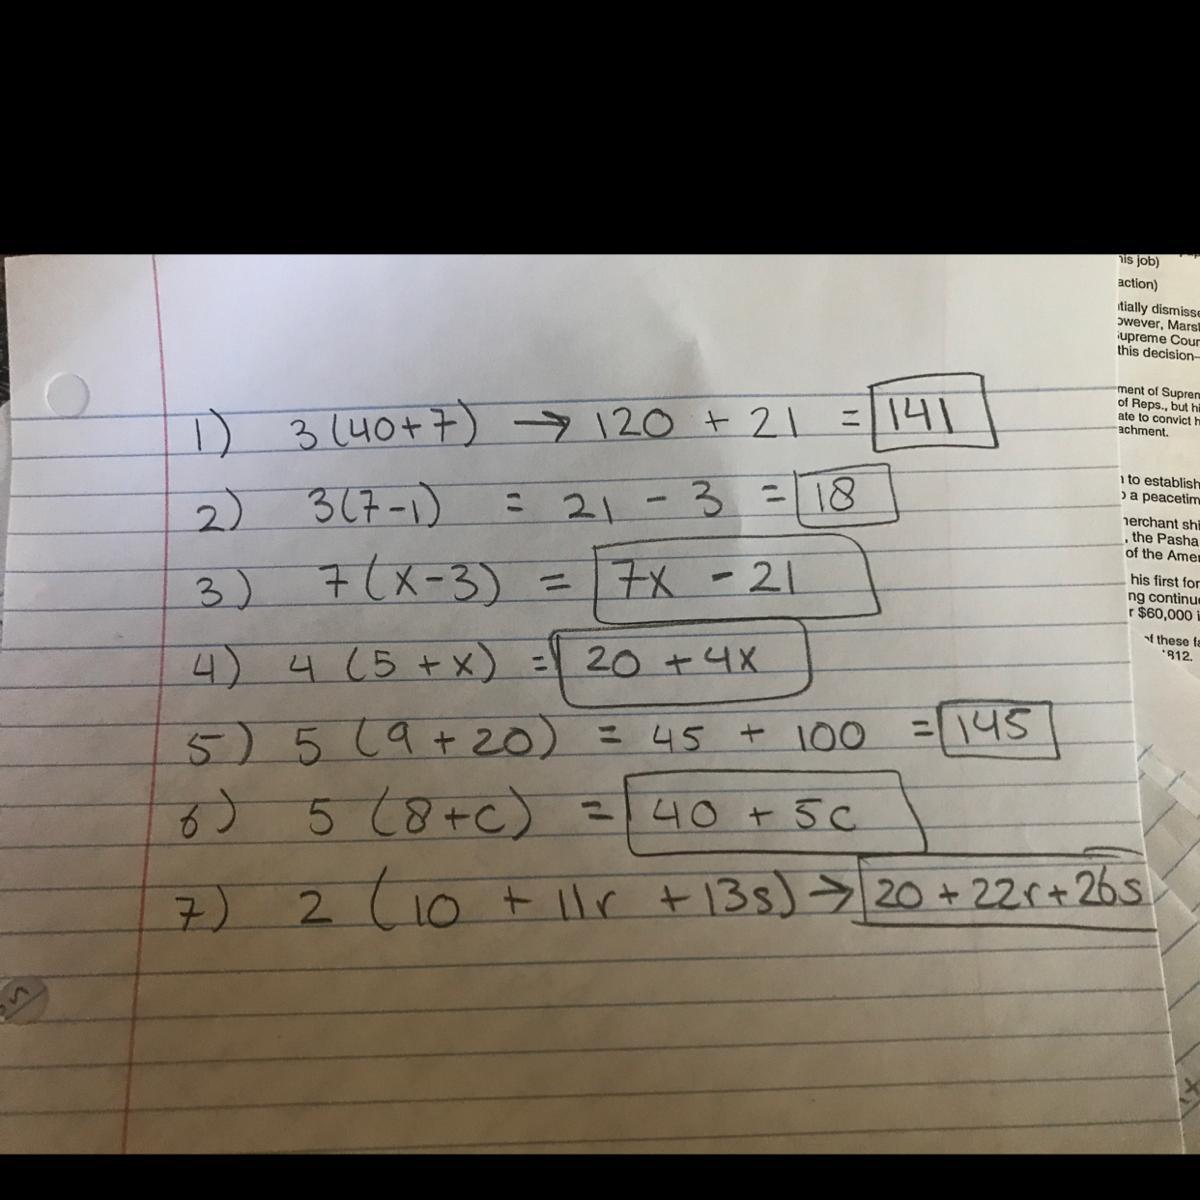 1) 3(40+7) → 120 + 21 = 141
2) 3(7-1) = 21 - 3 = 18
3) 7(x-3) = 7x - 21
4) 4(5+x) = 20 + 4x
5) 5(9+20) = 45 + 100 = 145
6) 5(8+c) = 40 + 5c
7) 2(10 + 11r + 13s) → 20 + 22r + 26s
his job)
action)
tially dismisse
owever, Mars
upreme Cour
this decision–
ment of Suprem
of Reps., but hi
ate to convict h
achment.
to establish
a peacetim
nerchant shi
, the Pasha
of the Amer
his first for
ng continue
r $60,000 i
of these fa
1812.